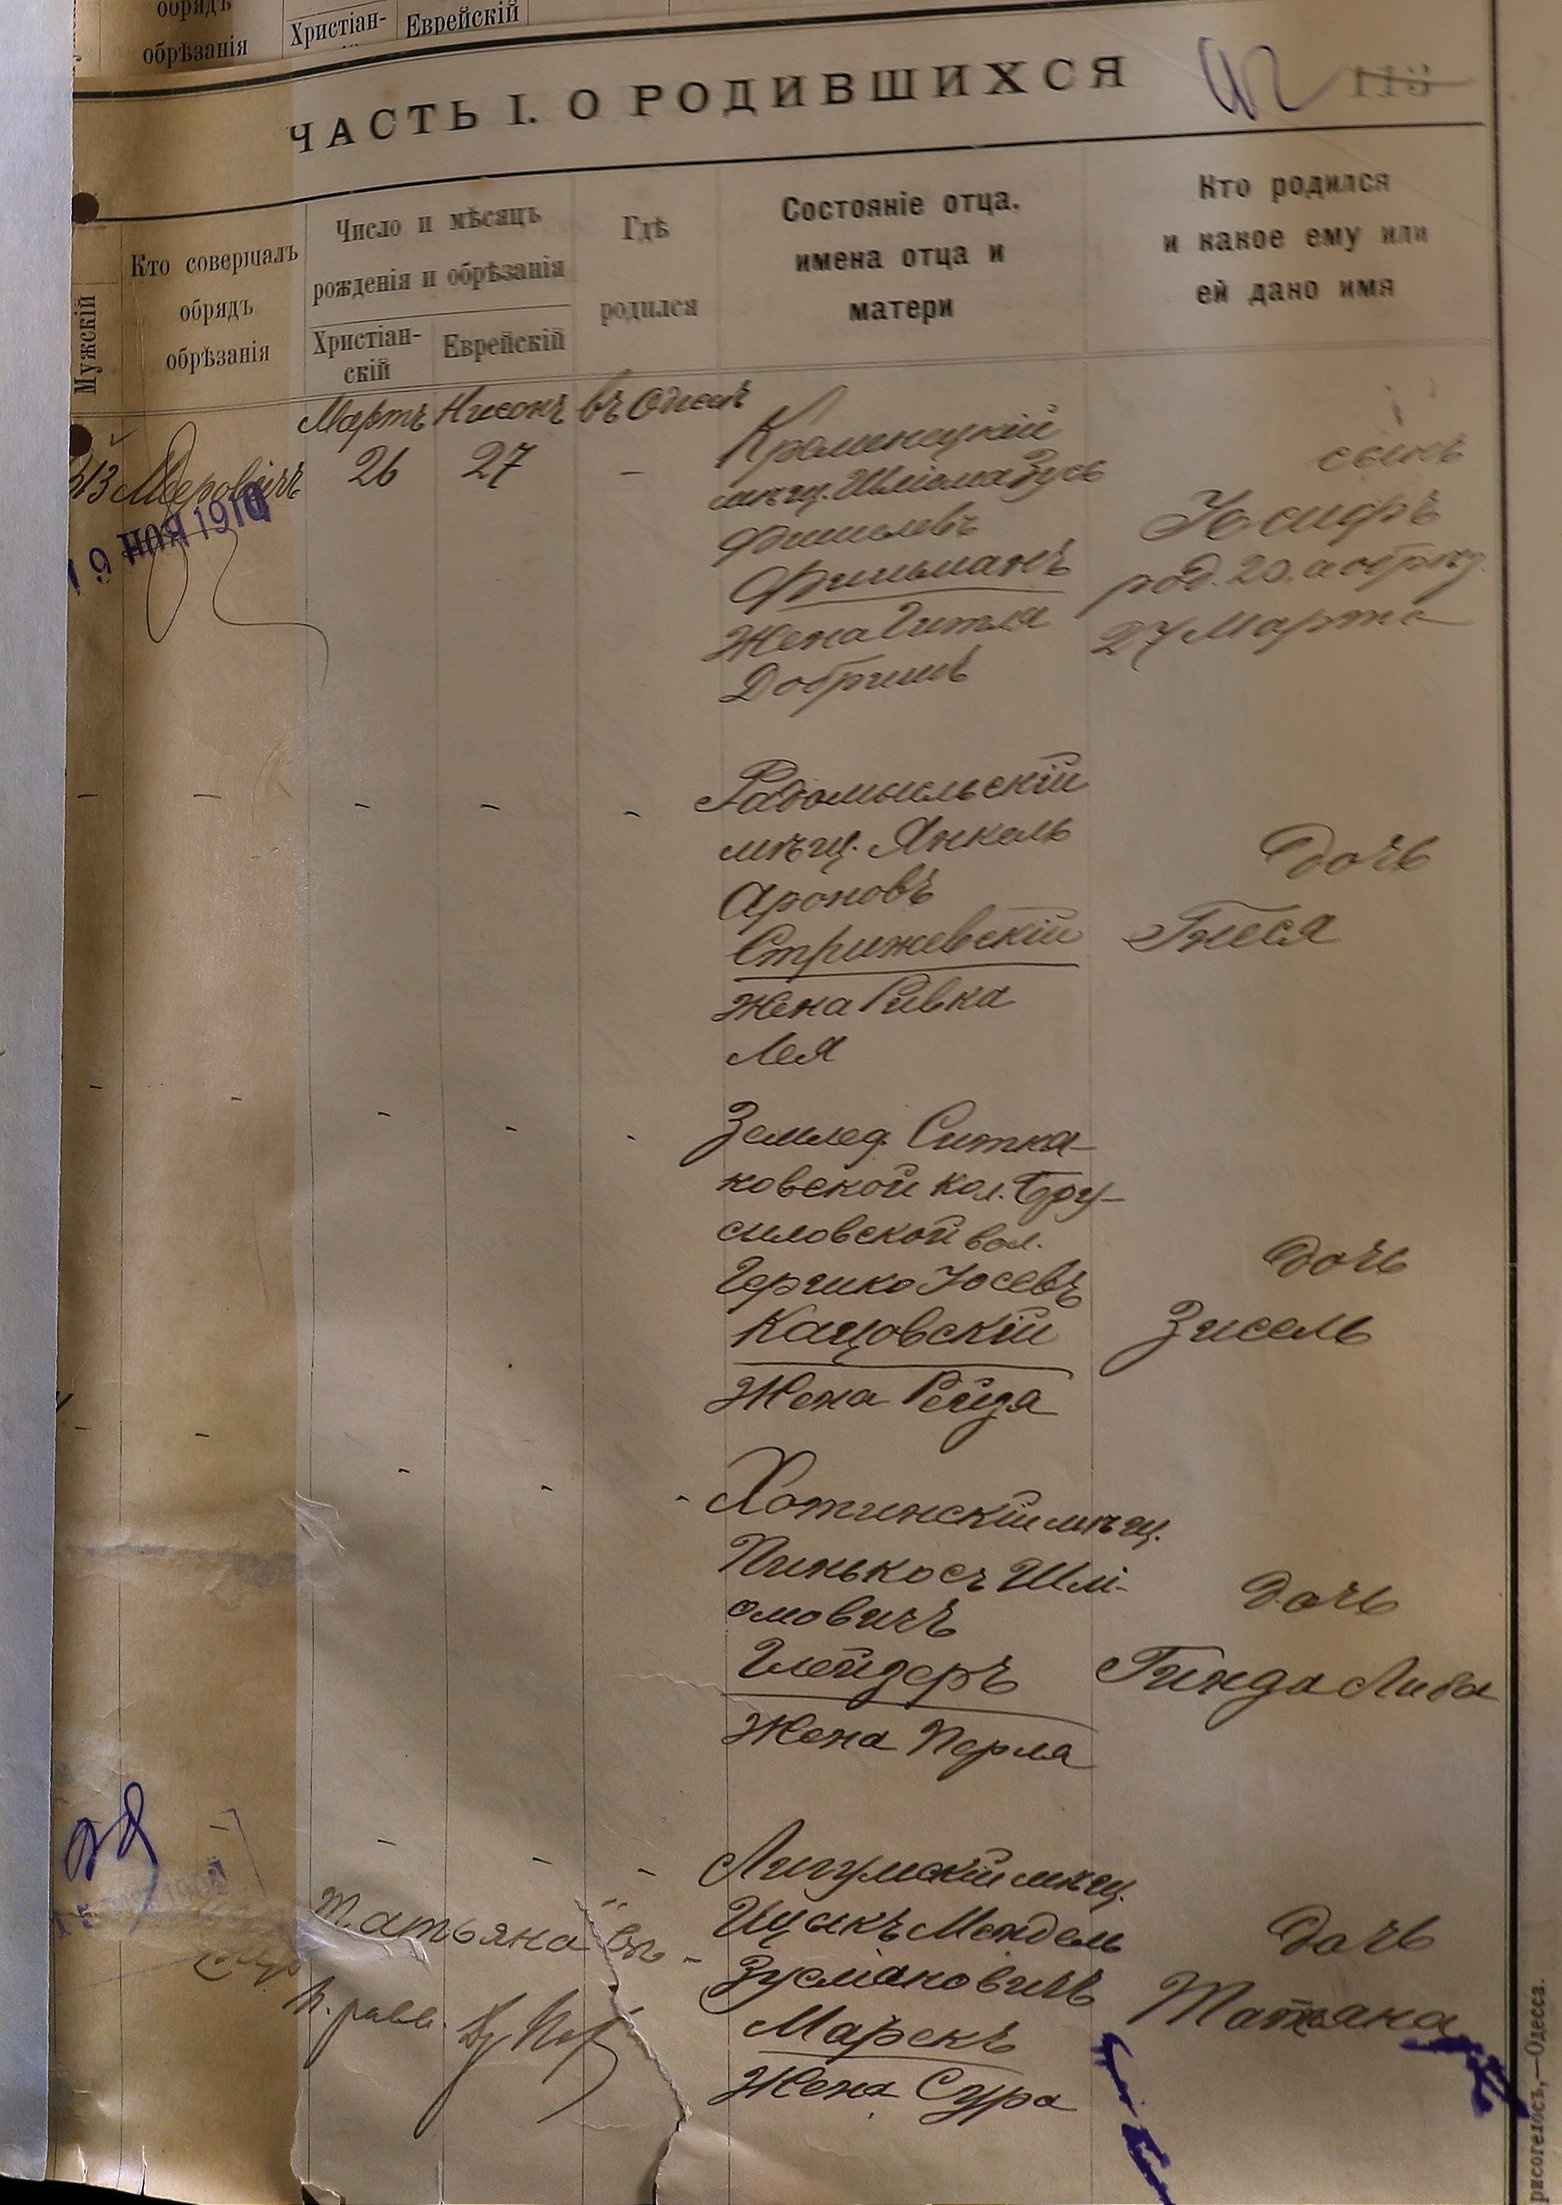 обрядъ
обрѣзанія
Христіан-
Еврейскій
ЧАСТЬ I. О РОДИВШИХСЯ
113
Мужскій
Кто совершалъ
обрядъ
обрѣзанія
Число и мѣсяцъ
рожденія и обрѣзанія
Христіан-
скій
Еврейскій
Гдѣ
родился
Состояніе отца,
имена отца и
матери
Кто родился
и какое ему или
ей дано имя
Мартъ Нисонъ въ Одессѣ
26 27 –
Кременецкій
мѣщ. Шліома Зусь
Фишелевъ
Фишманъ
Жена Гитля
Добришъ
сынъ
Іосифъ
род. 20, а обрѣз.
27 Марта
19 НОЯ 1910
Радомысльскій
мѣщ. Янкель
Ароновъ
Стрижевскій
Жена Ривка
Лея
дочь
Гнеся
Землед. Ситка-
ковской кол. Бру-
силовской вол.
Гершко Іосевъ
Кацовскій
Жена Рейзя
дочь
Зисель
Хотинскій мѣщ.
Пинькосъ Шлі-
омовичъ
Глейзеръ
Жена Перля
дочь
Гинда Либа
Лигумскій мѣщ.
Ицикъ Мендель
Зусмановичъ
Марекъ
Жена Сура
дочь
Татьяна
Татьяна"
рисогелосъ,—Одесса.